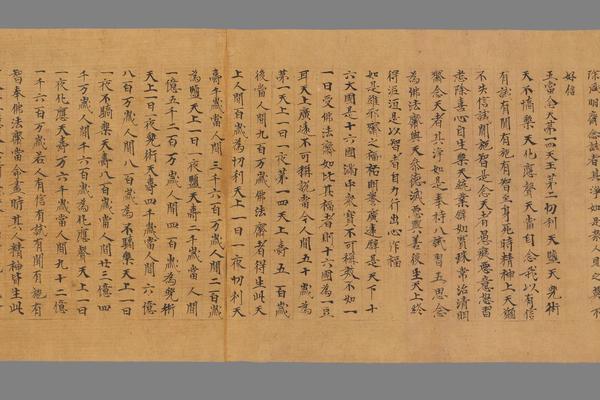 好信
五當念天第一四天王第二忉利天鹽天兜術
天不憍樂天化應聲天當自念我以有信
有戒有聞有施有智至身死時精神上天願
不失信戒聞施智是念天者愚癡惡意怒習
悉除善心自生樂天統業譬如寶珠常治清明
齋念天者其淨如是奉持八戒習五思念
為佛法齋與天參德滅惡興善後生天上終
得泥洹是以智者自力行出心作福
如是維耶齋之福祐明譽廣遠譬是天下十
六大國是十六國滿中衆寶不可稱數不如一
日受佛法齋如比其福者則十六國為一豆
耳天上廣遠不可稱說當今人間五十歲為
第一天上一日一夜第一四天上壽五百歲
彼當人間九百万歲佛法齋者得生此天
上人間百歲為忉利天上一日一夜忉利天
壽千歲當人間三千六百万歲人間二百歲
為鹽天上一日一夜鹽天壽二千歲當人間
一億五千二百万歲人間四百歲為兜術
天上一日一夜兜術天壽四千歲當人間六億
八百万歲人間八百歲為不驕樂天上一日
一夜不驕樂天壽八千歲當人間廿三億四
千万歲人間千六百歲為化應聲天上一日
一夜化應聲天壽万六千歲當人間九十二億
一千六百万歲若人有信有戒有聞有施有
智奉佛法齋當命盡時其人精神皆生此